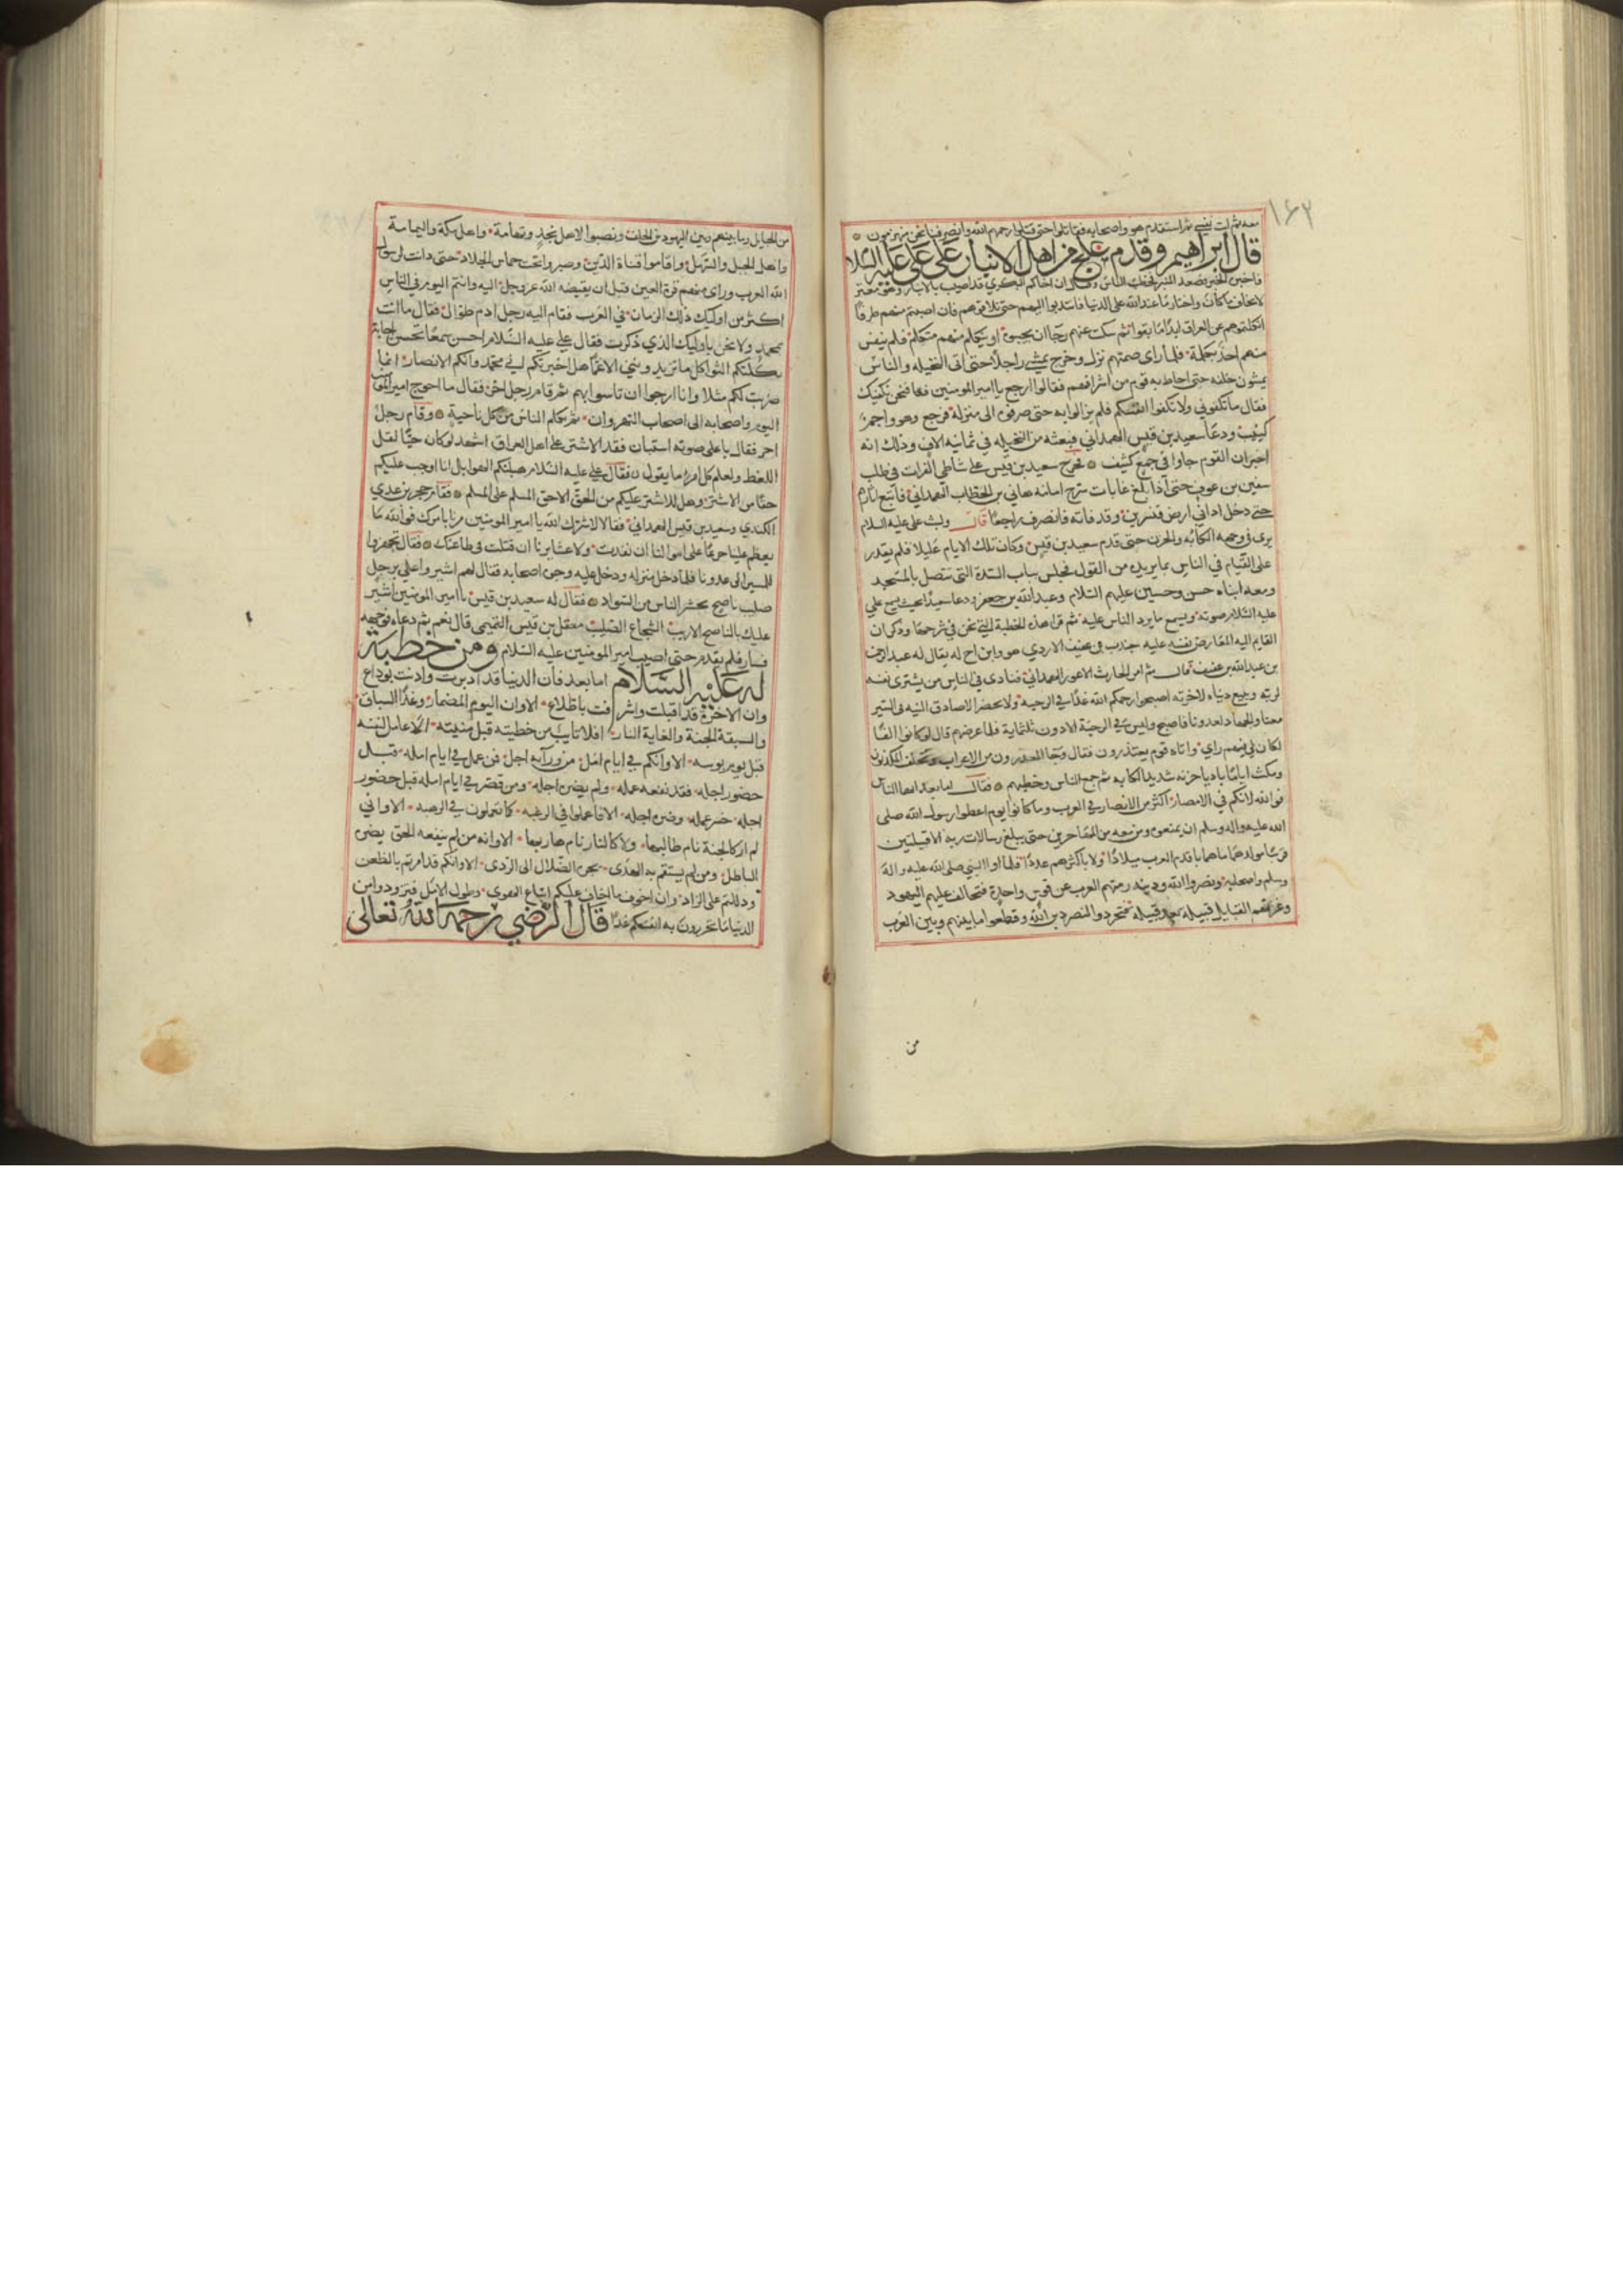 ١٦٢
معه ثم استقدم هو واصحابه فقاتلوا حتى قتلوا رحمهم الله وانصرفنا نحن منهزمون
قال ابراهيم وقدم علج من اهل الانبار على علي عليه السلا
فاخبره الخبر فصعد المنبر فخطب الناس وقال ان اخاكم البكري قد اصيب بالانبار وهو معتز
لا يخاف ما كان واختار ما عند الله على الدنيا فانتدبوا اليهم حتى تلاقوهم فان اصبتم منهم طرفا
انكلتموهم عن العراق ابدا ما بقوا ثم سكت عنهم رجا ان يجيبوه او يتكلم منهم متكلم فلم ينفس
منهم احد بكلمة فلما راى صمتهم نزل وخرج يمشي راجلا حتى اتى النخيله والناس
يمشون خلفه حتى احاط به قوم من اشرافهم فقالوا ارجع يا امير المومنين فها نحن نكفيك
فقال ما تكفوني ولا تكفوا انفسكم فلم يزالوا به حتى صرفوه الى منزله فرجع وهو واجم
كئيب ودعا سعيد بن قيس الهمداني فبعثه من النخيله في ثمانيه الاف وذلك انه
اخبر ان القوم جاوا في جمع كثيف فخرج سعيد بن قيس على شاطى الفرات في طلب
سفين بن عوف حتى اذا بلغ غابات سرح امامه هاني بن الخطاب الهمداني فاتبع اثارهم
حتى دخل اداني ارض قنسرين وقد فاته فانصرف راجعا قال ولبث علي عليه السلام
يرى في وجهه الكابه والحزن حتى قدم سعيد بن قيس وكان تلك الايام عليلا فلم يقدر
على القيام في الناس بما يريد من القول فجلس بباب السدة التي تتصل بالمسجد
ومعه ابناه حسن وحسين عليهم السلام وعبد الله بن جعفر ودعا سعيدا بحيث يسمع علي
عليه السلام صوته ويسمع ما يرد الناس عليه ثم قرا هذه الخطبة التي نحن في شرحها وذكر ان
القايم اليه العارض نفسه عليه جندب بن عفيف الازدي هو وابن اخ له يقال له عبد الرحمن
بن عبد الله بن عفيف قال ثم امر الحارث الاعور الهمداني فنادى في الناس من يشتري نفسه
لربه ويبيع دنياه لاخرته اصبحوا رحمكم الله غدا في الرحبه ولا يحضر الا صادق النيه في السير
معنا والجهاد لعدونا فاصبح وليس في الرحبة الا دون ثلثماية فلما عرضهم قال لو كانوا الفا
لكان لي فيهم راي واتاه قوم يعتذرون فقال وجا المعذرون من الاعراب وتخلف المكذبون
ومكث اياما باديا حزنه شديد الكابه ثم جمع الناس وخطبهم فقال اما بعد ايها الناس
فو الله لانكم في الامصار اكثر من الانصار في العرب وما كانوا يوم اعطوا رسول الله صلى
الله عليه واله وسلم ان يمنعوه ومن معه من المهاجرين حتى يبلغ رسالات ربه الا قبيلتين
قريبا مولدهما ما هما باقدم العرب ميلادا ولا باكثرهم عددا فلما اووا النبي صلى الله عليه واله
وسلم واصحابه ونصروا الله ودينه رمتهم العرب عن قوس واحدة فتحالفت عليهم اليهود
وغزتهم القبايل قبيلة بعد قبيله فتجردوا لنصر دين الله وقطعوا ما بينهم وبين العرب
من
من الحبايل وما بينهم وبين اليهود من الحلف ونصبوا لاهل نجد وتهامة واهل مكة واليمامة
واهل الجبل والسهل واقاموا قناة الدين وصبروا تحت حماس الجلاد حتى دانت لرسول
الله العرب وراى منهم قرة العين قبل ان يقبضه الله عز وجل اليه وانتم اليوم في الناس
اكثر من اوليك ذلك الزمان في العرب فقام اليه رجل ادم طوال فقال ما انت
بمحمد ولا نحن باوليك الذي ذكرت فقال علي عليه السلام احسن سمعا تحسن اجابة
ثكلتكم الثواكل ما تزيدوني الا غما هل اخبرتكم اني محمد وانكم الانصار انما
ضربت لكم مثلا وانا ارجوا ان تاسوا بهم ثم قام رجل اخر فقال ما احوج امير المومنين
اليوم واصحابه الى اصحاب النهروان ثم تكلم الناس من كل ناحية وقام رجل
اخر فقال باعلى صوته استبان فقد الاشتر على اهل العراق اشهد لو كان حيا لقل
اللغط ولعلم كل امرئ ما يقول فقال علي عليه السلام هبلتكم الهوابل انا اوجب عليكم
حقا من الاشتر وهل للاشتر عليكم من الحق الا حق المسلم على المسلم فقام حجر بن عدي
الكندي وسعيد بن قيس الهمداني فقالا لا يسوءك الله يا امير المومنين مرنا بامرك فو الله ما
يعظم علينا جزعا على اموالنا ان نفدت ولا عشايرنا ان قتلت في طاعتك فقال تجهزوا
للمسير الى عدونا فلما دخل منزله ودخل عليه وجوه اصحابه فقال لهم اشيروا علي برجل
صليب ناصح يحشر الناس من السواد فقال له سعيد بن قيس يا امير المومنين اشير
عليك بالناصح الاريب الشجاع الصليب معقل بن قيس التميمي قال نعم ثم دعاه فوجهه
فسار فلم يقدم حتى اصيب امير المومنين عليه السلام ومن خطبة
له عليه السلام اما بعد فان الدنيا قد ادبرت واذنت بوداع
وان الاخرة قد اقبلت واشرفت باطلاع الا وان اليوم المضمار وغدا السباق
والسبقة الجنة والغاية النار افلا تايب من خطيته قبل منيته الا عامل لنفسه
قبل يوم بوسه الا وانكم في ايام امل من ورآيه اجل فمن عمل في ايام امله قبل
حضور اجله فقد نفعه عمله ولم يضره اجله ومن قصر في ايام امله قبل حضور
اجله خسر عمله وضره اجله الا فاعملوا في الرغبه كما تعملون في الرهبه الا واني
لم ار كالجنة نام طالبها ولا كالنار نام هاربها الا وانه من لم ينفعه الحق يضره
الباطل ومن لم يستقم به الهدى يجره الضلال الى الردى الا وانكم قد امرتم بالظعن
ودللتم على الزاد وان اخوف ما اخاف عليكم اتباع الهوى وطول الامل فتزودوا من
الدنيا ما تحرزون به انفسكم غدا قال الرضي رحمه الله تعالى